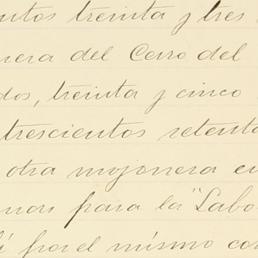 ntos treinta y tres
nera del Cerro del
dos, treinta y cinco
trescientos setenta
otra mojonera en
para la "Labo
por el mismo con